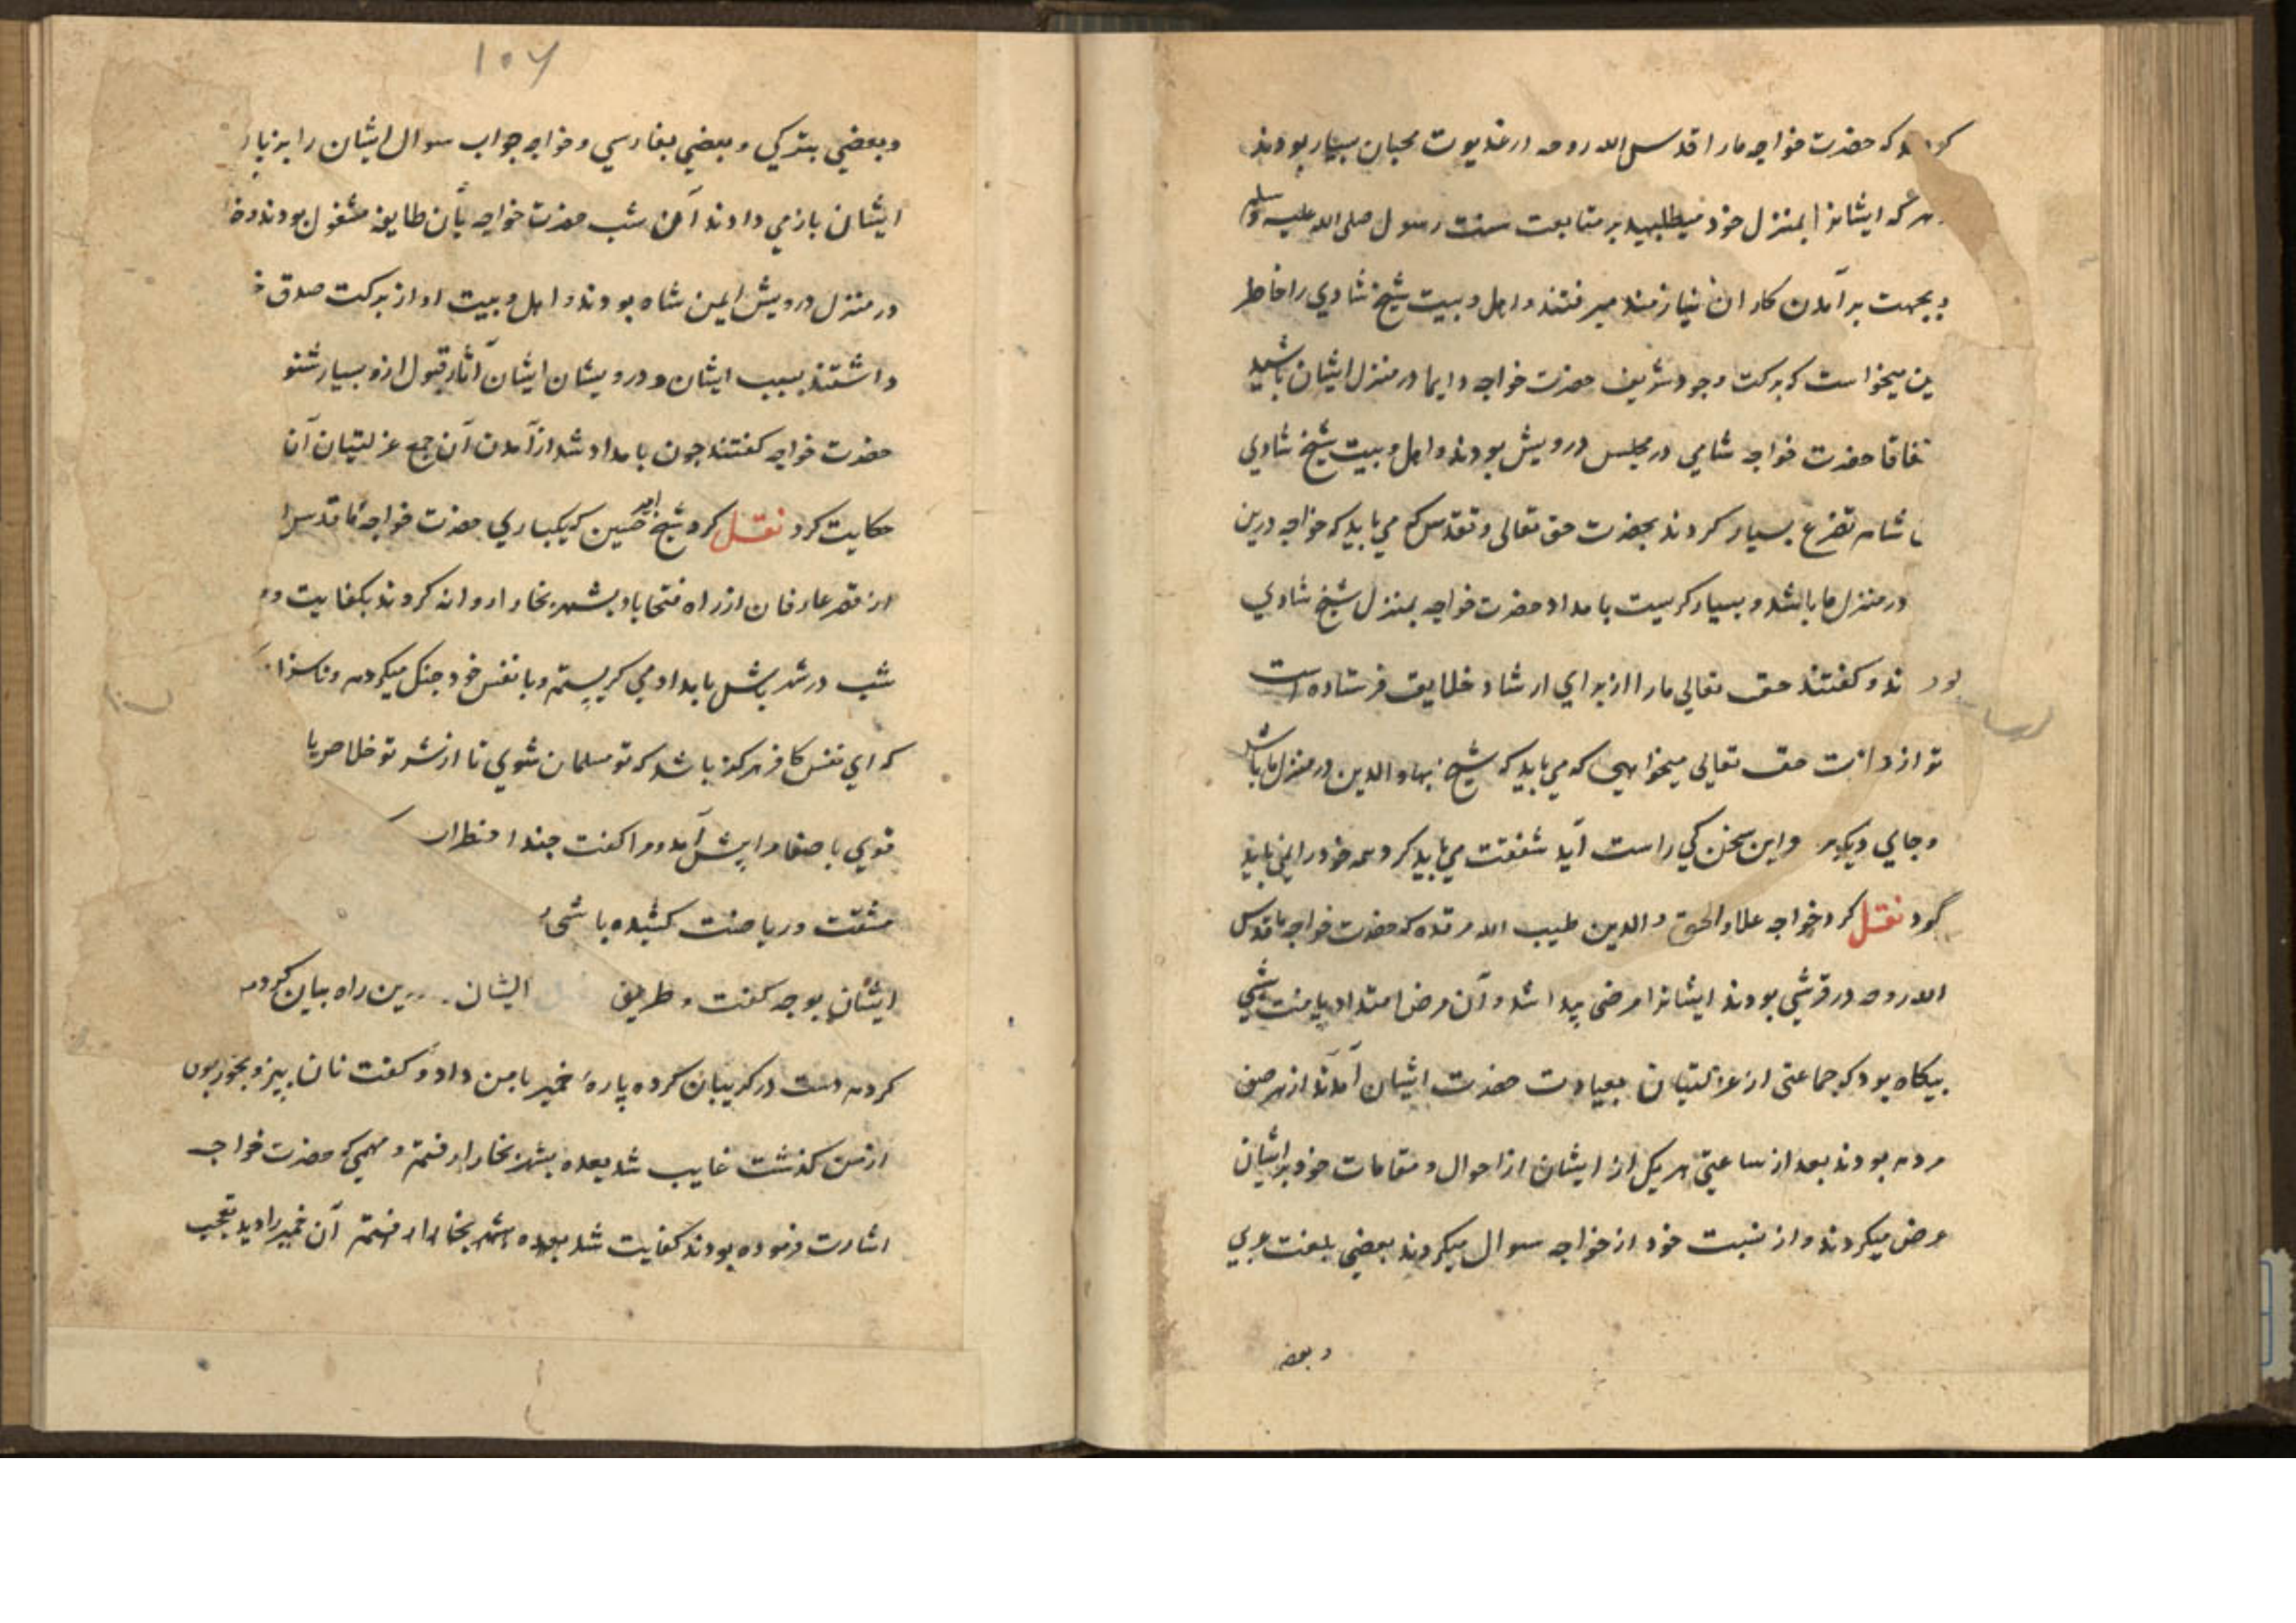 که حضرت خواجه ما را قدس الله روحه در غدیوت محبان بسیار بودند
هر که ایشانرا بمنزل خود میطلبید بر متابعت سنت رسول صلی الله علیه وسلم
و بجهت برآمدن کار آن نیازمند میرفتند و اهل و بیت شیخ شادی را خاطر
ین میخواست که برکت وجود شریف حضرت خواجه دایما در منزل ایشان باشد
تفاقا حضرت خواجه شامی در مجلس درویش بودند و اهل و بیت شیخ شادی
شام تضرع بسیار کردند بحضرت حق تعالی و تقدس که می باید که خواجه درین
در منزل ما باشد و بسیار کریست بامداد حضرت خواجه بمنزل شیخ شادی
ند و کفتند حق تعالی ما را از برای ارشاد خلایق فرستاده است
تو از حق تعالی میخواهی که می باید که شیخ بهاء الدین در منزل ما باشد
و جای دیکر و این سخن کی راست آید شفقت می باید کرد همه خود را نمی باید
نقل کرد خواجه علاء الحق و الدین طیب الله مرقده که حضرت خواجه ما قدس
الله روحه در قرشی بودند ایشانرا مرضی پیدا شد و آن مرض امتداد یافت شبی
بیکاه بود که جماعتی از عزلتیان بعیادت حضرت ایشان آمدند از هر صنف
مردم بودند بعد از ساعتی هر یکی از ایشان از احوال و مقامات خود بر ایشان
عرض میکردند و از نسبت خود از خواجه سوال میکردند بعضی بلغت عربی
و بعضی
۱۰۷
و بعضی بترکی و بعضی بفارسی و خواجه جواب سوال ایشان را بزبان
ایشان باز می دادند آن شب حضرت خواجه بآن طایفه مشغول بودند و
در منزل درویش ایمن شاه بودند و اهل و بیت او از برکت صدق
داشتند بسبب ایشان و درویشان ایشان آثار قبول ازو بسیار
حضرت خواجه کفتند چون بامداد شد از آمدن آن جمع عزلتیان آن
حکایت کرد نقل کرد شیخ امیر حسین کیکباری حضرت خواجه ما قدس
از قصر عارفان از راه فتحاباد بشهر بخارا روانه کردند بکفایت
شب در شد باشل بامداد می کریستم و با نفس خود جنک میکردم و ناسزا
که ای نفس کافر هرکز باشد که تو مسلمان شوی تا از شر تو خلاص
قوی با صفا مرا پیش آمد و مرا کفت چند اضطرار
مشقت و ریاضت کشیده باشی
ایشان بوجه کفت و طریق ایشان راه بیان کردم
کردم دست در کریبان کرده پارهٔ خمیر بامن داد و کفت نان بپز و بخور چون
از من کذشت غایب شد بعده بشهر بخارا در رفتم و مهمی که حضرت خواجه
اشارت فرموده بودند کفایت شد بعده بشهر بخارا در رفتم آن خمیر را دید تعجب